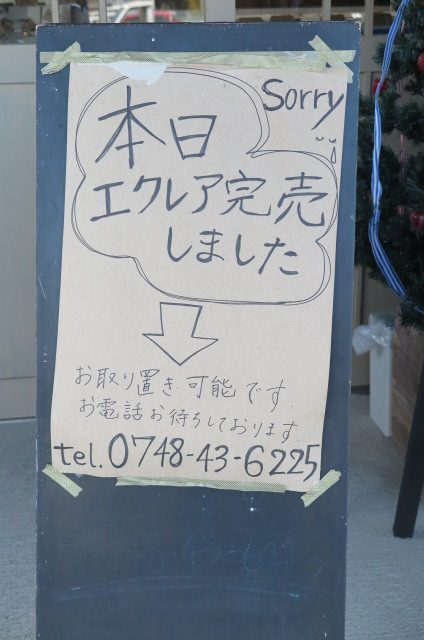 Sorry
本日
エクレア完売
しました
お取り置き可能です
お電話お待ちしております
tel. 0748-43-6225